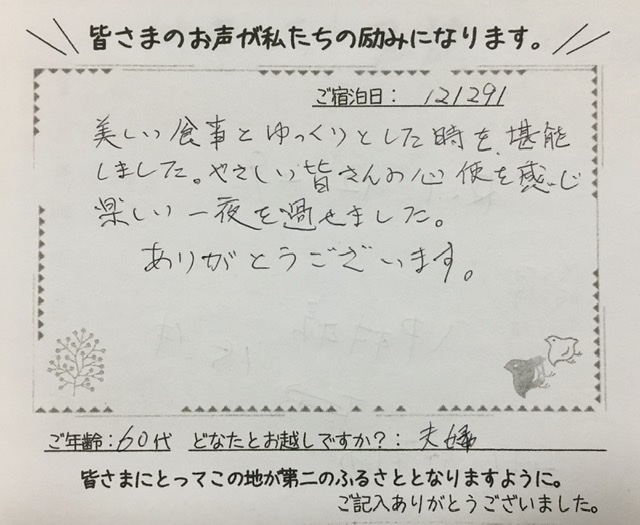 皆さまのお声が私たちの励みになります。
ご宿泊日: 12/29
美しい食事とゆっくりとした時を、堪能
しました。やさしい皆さんの心使を感じ
楽しい一夜を過せました。
ありがとうございます。
ご年齢:60代 どなたとお越しですか?: 夫婦
皆さまにとってこの地が第二のふるさととなりますように。
ご記入ありがとうございました。